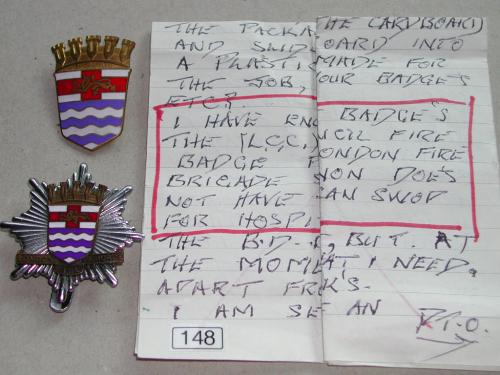 THE PACKA THE CARDBOARD
AND SLID BOARD INTO
A PLASTI MADE FOR
THE JOB, OUR BADGE'S
ETC?
I HAVE ENC BADGE'S
THE (L.C.C. NCIL FIRE
BADGE F ONDON FIRE
BRIGADE NON DOE'S
NOT HAVE AN SWOP
FOR HOSPI
THE B.D. , BUT. AT
THE MOMEN I NEED,
APART FR K'S-
I AM SE AN
P.T.O.
148